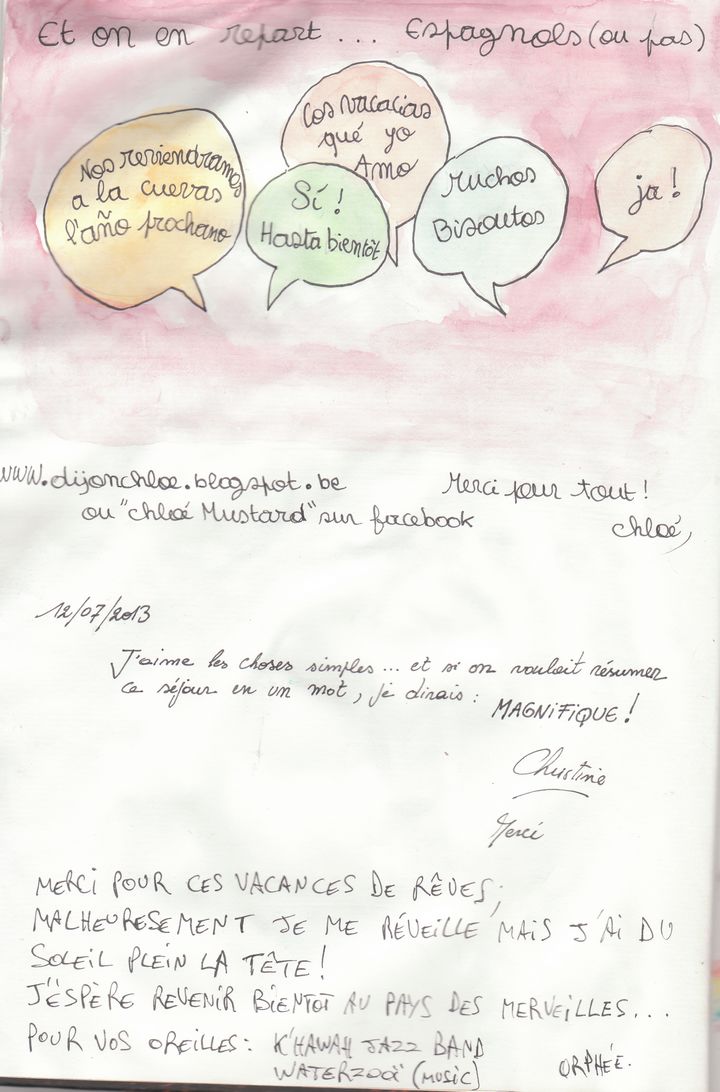 Et on en repart... Espagnols (ou pas)
Los vacacias
qué yo
Amo
Nos reviendramos
a la cuevas
l'año prochano
Sí !
Hasta bientôt
Muchos
Biscoutos
ja !
www.dijonchloe.blogspot.be
ou "chloé Mustard" sur facebook
Merci pour tout !
chloé,
12/07/2013
J'aime les choses simples... et si on voulait résumer
ce séjour en un mot, je dirais : MAGNIFIQUE !
Christine
Merci
MERCI POUR CES VACANCES DE RÊVES,
MALHEURESEMENT JE ME RÉVEILLE MAIS J'AI DU
SOLEIL PLEIN LA TÊTE !
J'ESPÈRE REVENIR BIENTOT AU PAYS DES MERVEILLES...
POUR VOS OREILLES : K'HAWAH JAZZ BAND
WATERZOOÏ (MUSIC)
ORPHÉE.